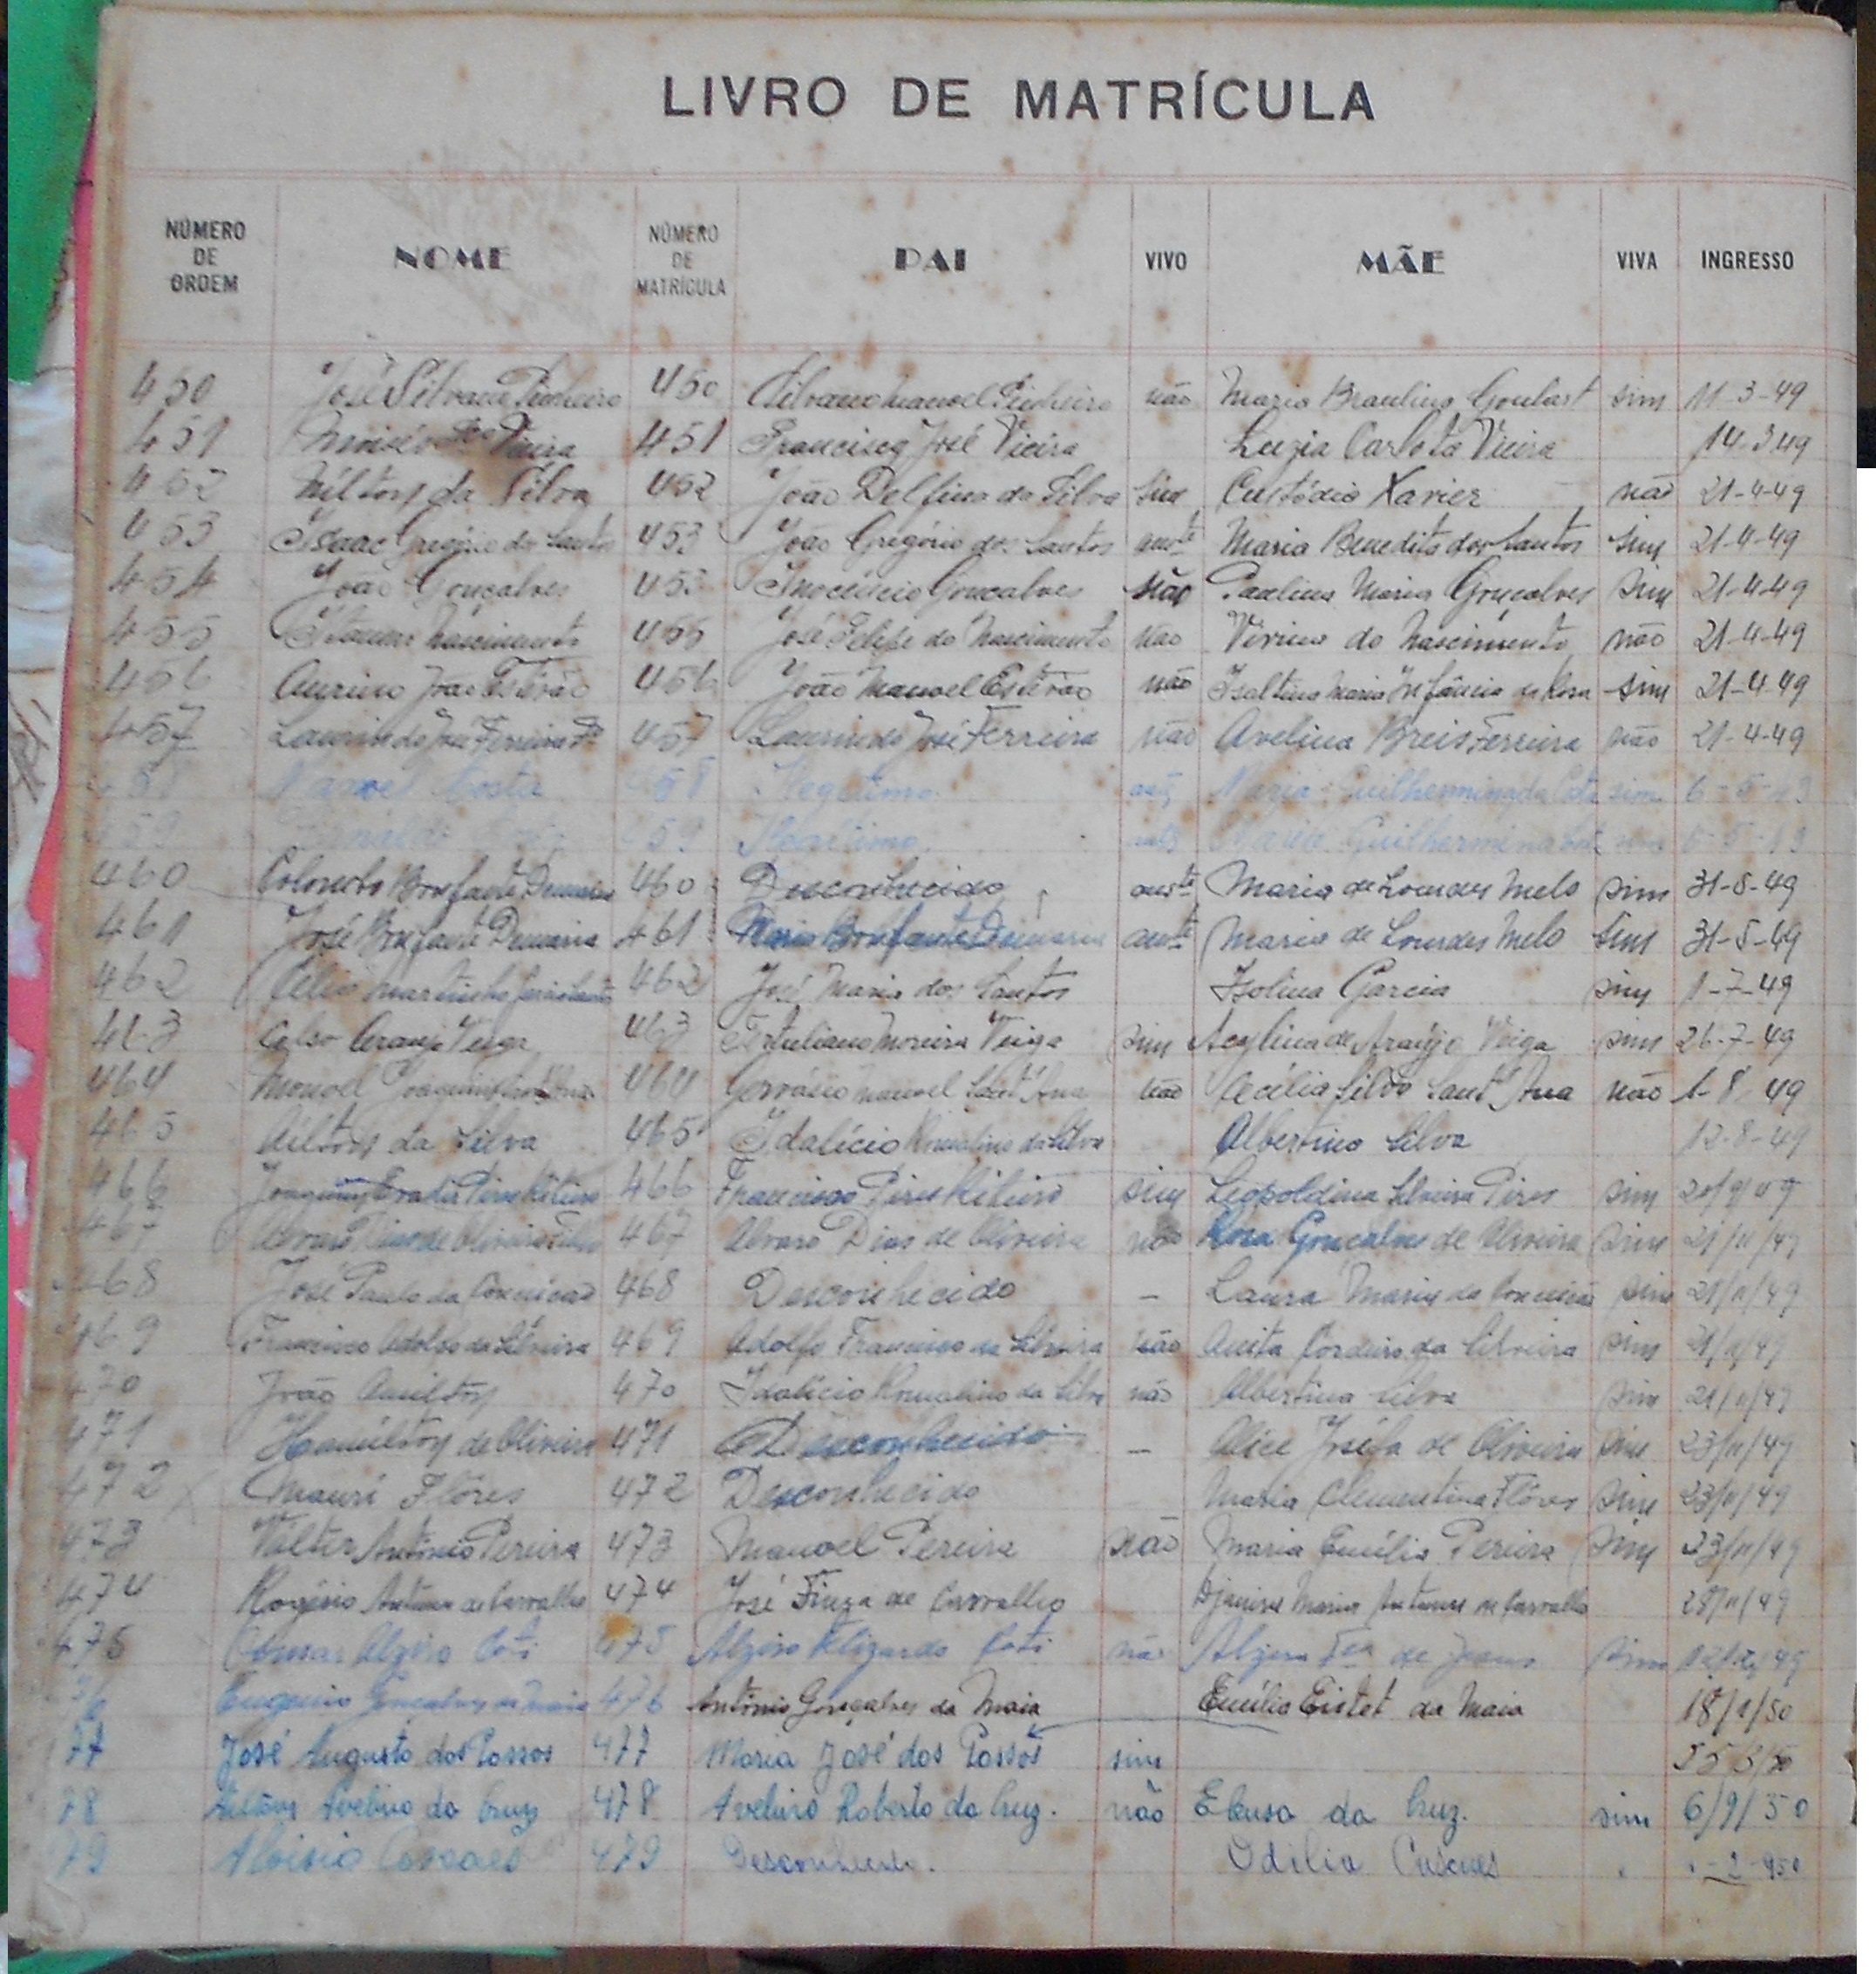 LIVRO DE MATRÍCULA
NÚMERO DE ORDEM NOME NÚMERO DE MATRÍCULA PAI VIVO MÃE VIVA INGRESSO
450 José Silvano Pinheiro 450 Silvano Manoel Pinheiro não Maria Braulina Goulart sim 11-3-49
451 Vieira 451 Francisco José Vieira Luzia Carlota Vieira 14-3-49
452 Nilton da Silva 452 João Delfino da Silva sim Custódia Xavier não 21-4-49
453 Isaac Gregório dos Santos 453 João Gregório dos Santos auste Maria Benedita dos Santos sim 21-4-49
454 João Gonçalves 453 Inocêncio Gonçalves não Paulina Maria Gonçalves sim 21-4-49
455 Nascimento 455 José Felipe do Nascimento não do Nascimento não 21-4-49
456 Aurino João Estêvão 456 João Manoel Estêvão não Isaltina Maria da Rosa sim 21-4-49
457 Laurindo José Ferreira Fº 457 Laurindo José Ferreira não Avelina Breis Ferreira não 21-4-49
458 Manoel Costa 458 Ilegitimo Maria Guilhermina da sim 6-5-49
459 59 Ilegitimo Maria Guilhermina
460 Bonfante Demaria 460 Desconhecido auste Maria de Lourdes Melo sim 31-5-49
461 José Bonfante Demaria 461 Bonfante Demaria auste Maria de Lourdes Melo sim 31-5-49
462 Célio Martinho 462 José Maria dos Santos Isolina Garcia sim 1-7-49
463 Celso Araujo Veiga 463 Tertuliano Moreira Veiga sim de Araújo Veiga sim 26-7-49
464 Manoel Joaquim 464 Gervásio Manoel Sant'Ana não Cecília Silva Sant'Ana não 1-8-49
465 Ailton da Silva 465 Idalício Romalino da Silva Albertina Silva 12-8-49
466 Joaquim Pires Ribeiro 466 Francisco Pires Ribeiro sim Leopoldina Silveira Pires sim 20/9/49
467 Alvaro Dias de Oliveira Filho 467 Alvaro Dias de Oliveira não Rosa Gonçalves de Oliveira sim 21/11/49
468 José Paulo da Conceicão 468 Desconhecido - Laura Maria da Conceicão sim 21/11/49
469 Francisco Adolfo da Silveira 469 Adolfo Francisco da Silveira não Anita Cordeiro da Silveira sim 21/11/49
470 João Amilton 470 Idalício Romalino da Silva não Albertina Silva sim 21/11/49
471 Hamilton de Oliveira 471 Desconhecido - Alice Josefa de Oliveira sim 23/11/49
472 Mauri Flôres 472 Desconhecido Maria Clementina Flôres sim 23/11/49
473 Válter Antônio Pereira 473 Manoel Pereira não Maria Emília Pereira sim 23/11/49
474 Rogério Antunes de Carvalho 474 José Fiuza de Carvalho Maria Antunes de Carvalho 28/11/49
475 Alziro Coti 475 Alziro Elizardo Coti não Alzira de Jesus sim
Eugenio Gonçalves da Maia 476 Antônio Gonçalves da Maia Emília Eistet da Maia 18/1/50
77 José Augusto dos Passos 477 Maria José dos Passos sim
78 Nilton Avelino da Cruz 478 Avelino Roberto da Cruz. não Eleusa da Cruz. sim 6/9/50
79 Aloisio Cascaes 479 Desconhecido. Odilia Cascaes -2-950